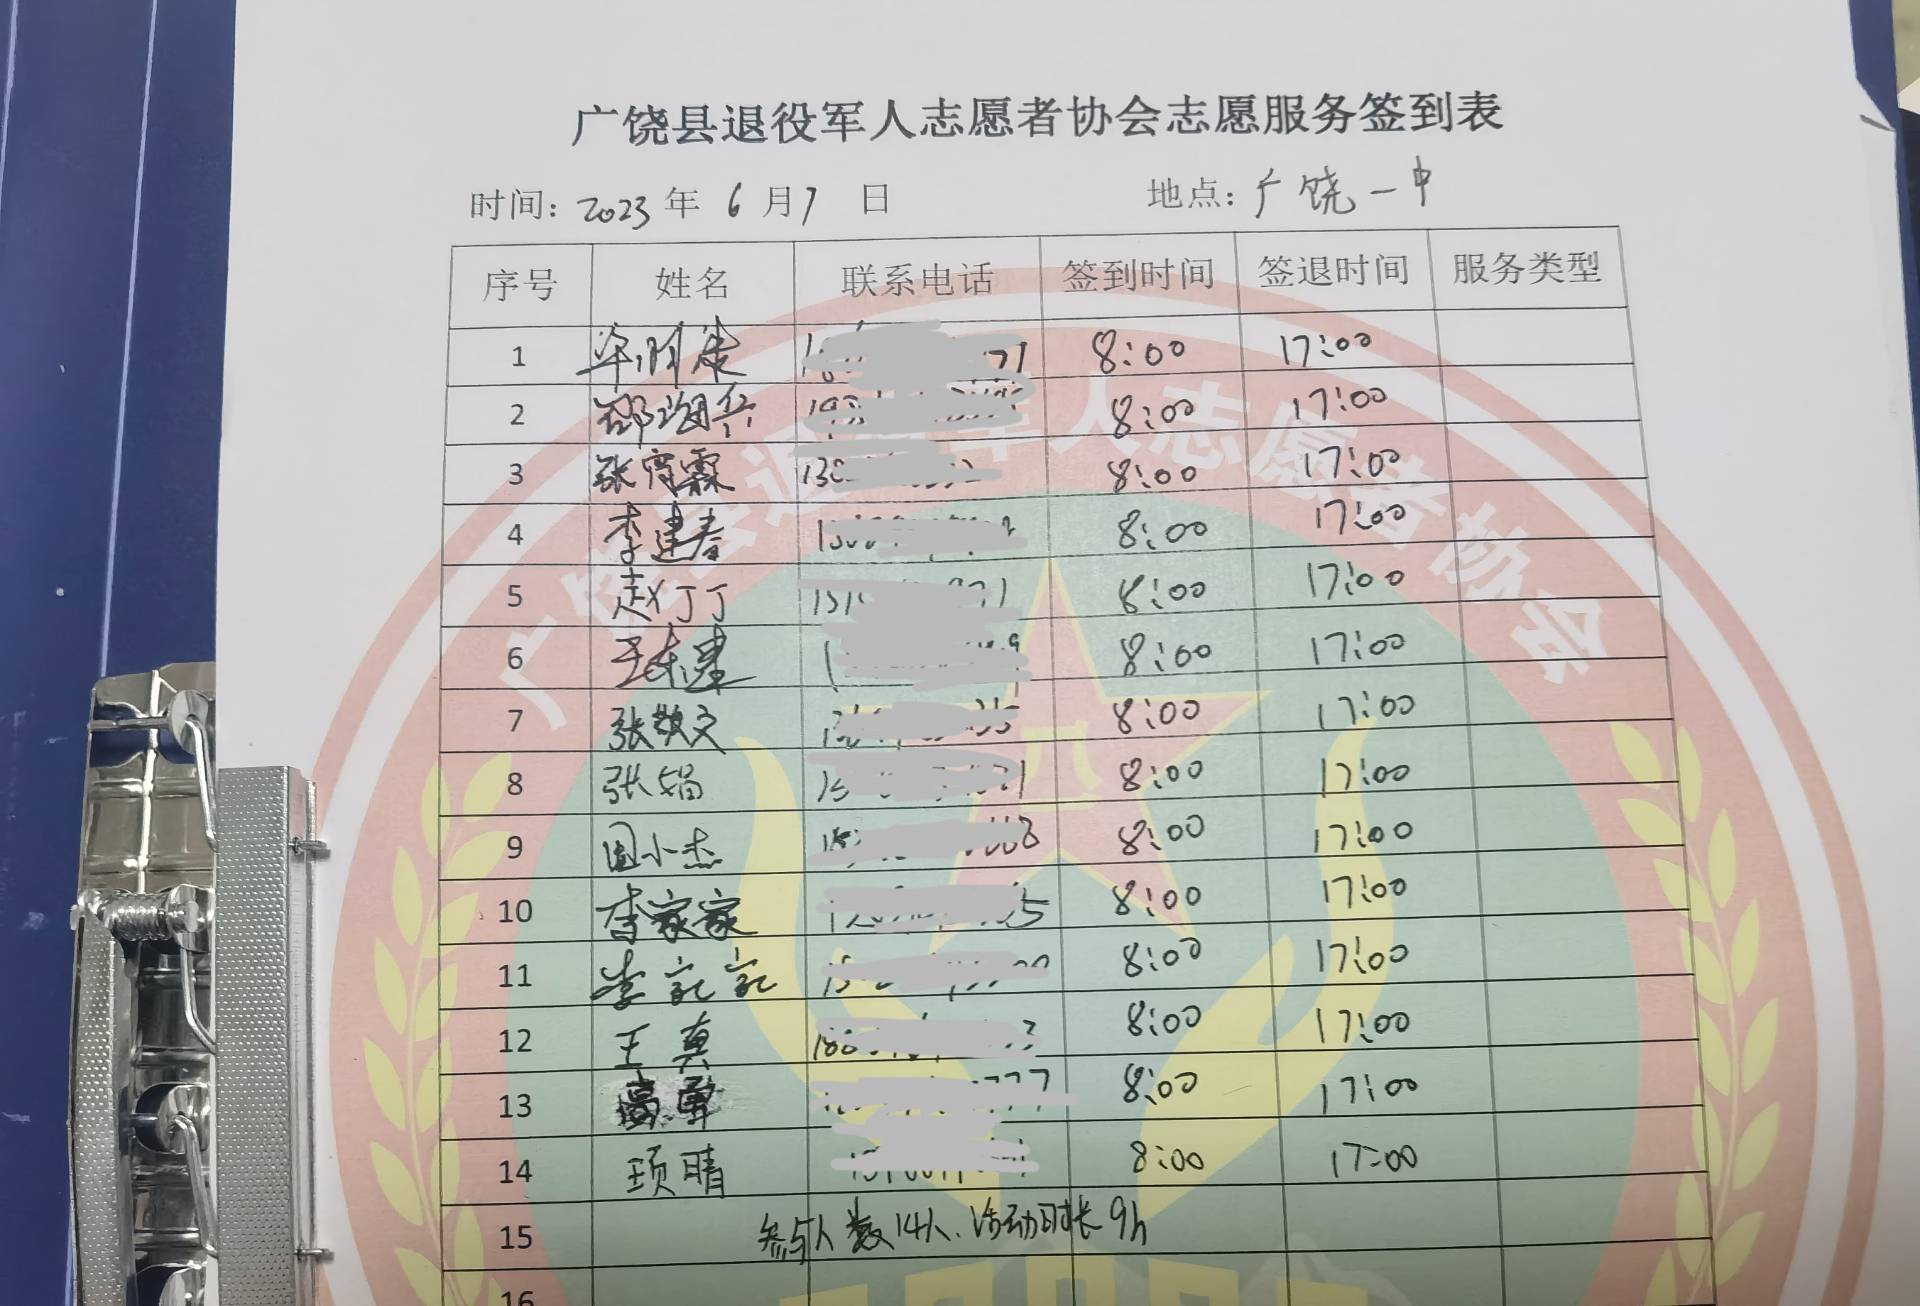 广饶县退役军人志愿者协会志愿服务签到表
时间: 2023 年 6 月 7 日 地点: 广饶一中
序号 姓名 联系电话 签到时间 签退时间 服务类型
1 8:00 17:00
2 邵海兵 8:00 17:00
3 张霄霖 8:00 17:00
4 李建春 8:00 17:00
5 赵丁丁 8:00 17:00
6 8:00 17:00
7 张敬文 8:00 17:00
8 张娟 8:00 17:00
9 周小杰 8:00 17:00
10 李家家 8:00 17:00
11 8:00 17:00
12 王真 8:00 17:00
13 8:00 17:00
14 顼晴 8:00 17:00
15 参与人数14人、活动时长9h
16